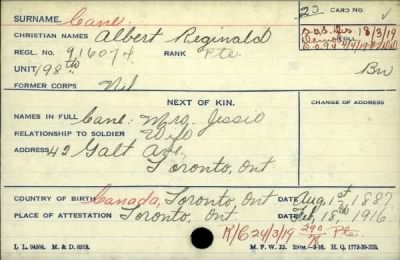 SURNAME. Cane. 23 CARD NO.
CHRISTIAN NAMES Albert Reginald
REGL. NO. 916074 RANK Pte.
18/3/19
UNIT 198th Bn
FORMER CORPS Nil
NEXT OF KIN. CHANGE OF ADDRESS
NAMES IN FULL Cane Mrs. Jessie
RELATIONSHIP TO SOLDIER Wife
ADDRESS 42 Galt Ave,
Toronto, Ont
COUNTRY OF BIRTH Canada, Toronto, Ont DATE Aug, 1st, 1887.
PLACE OF ATTESTATION Toronto, Ont. DATE Feb, 18th, 1916.
R/C 24/3/19 290/R Pte.
L. L. 94504. M. & D. 6512. M. F. W. 22 H. Q. 1772-39-339.